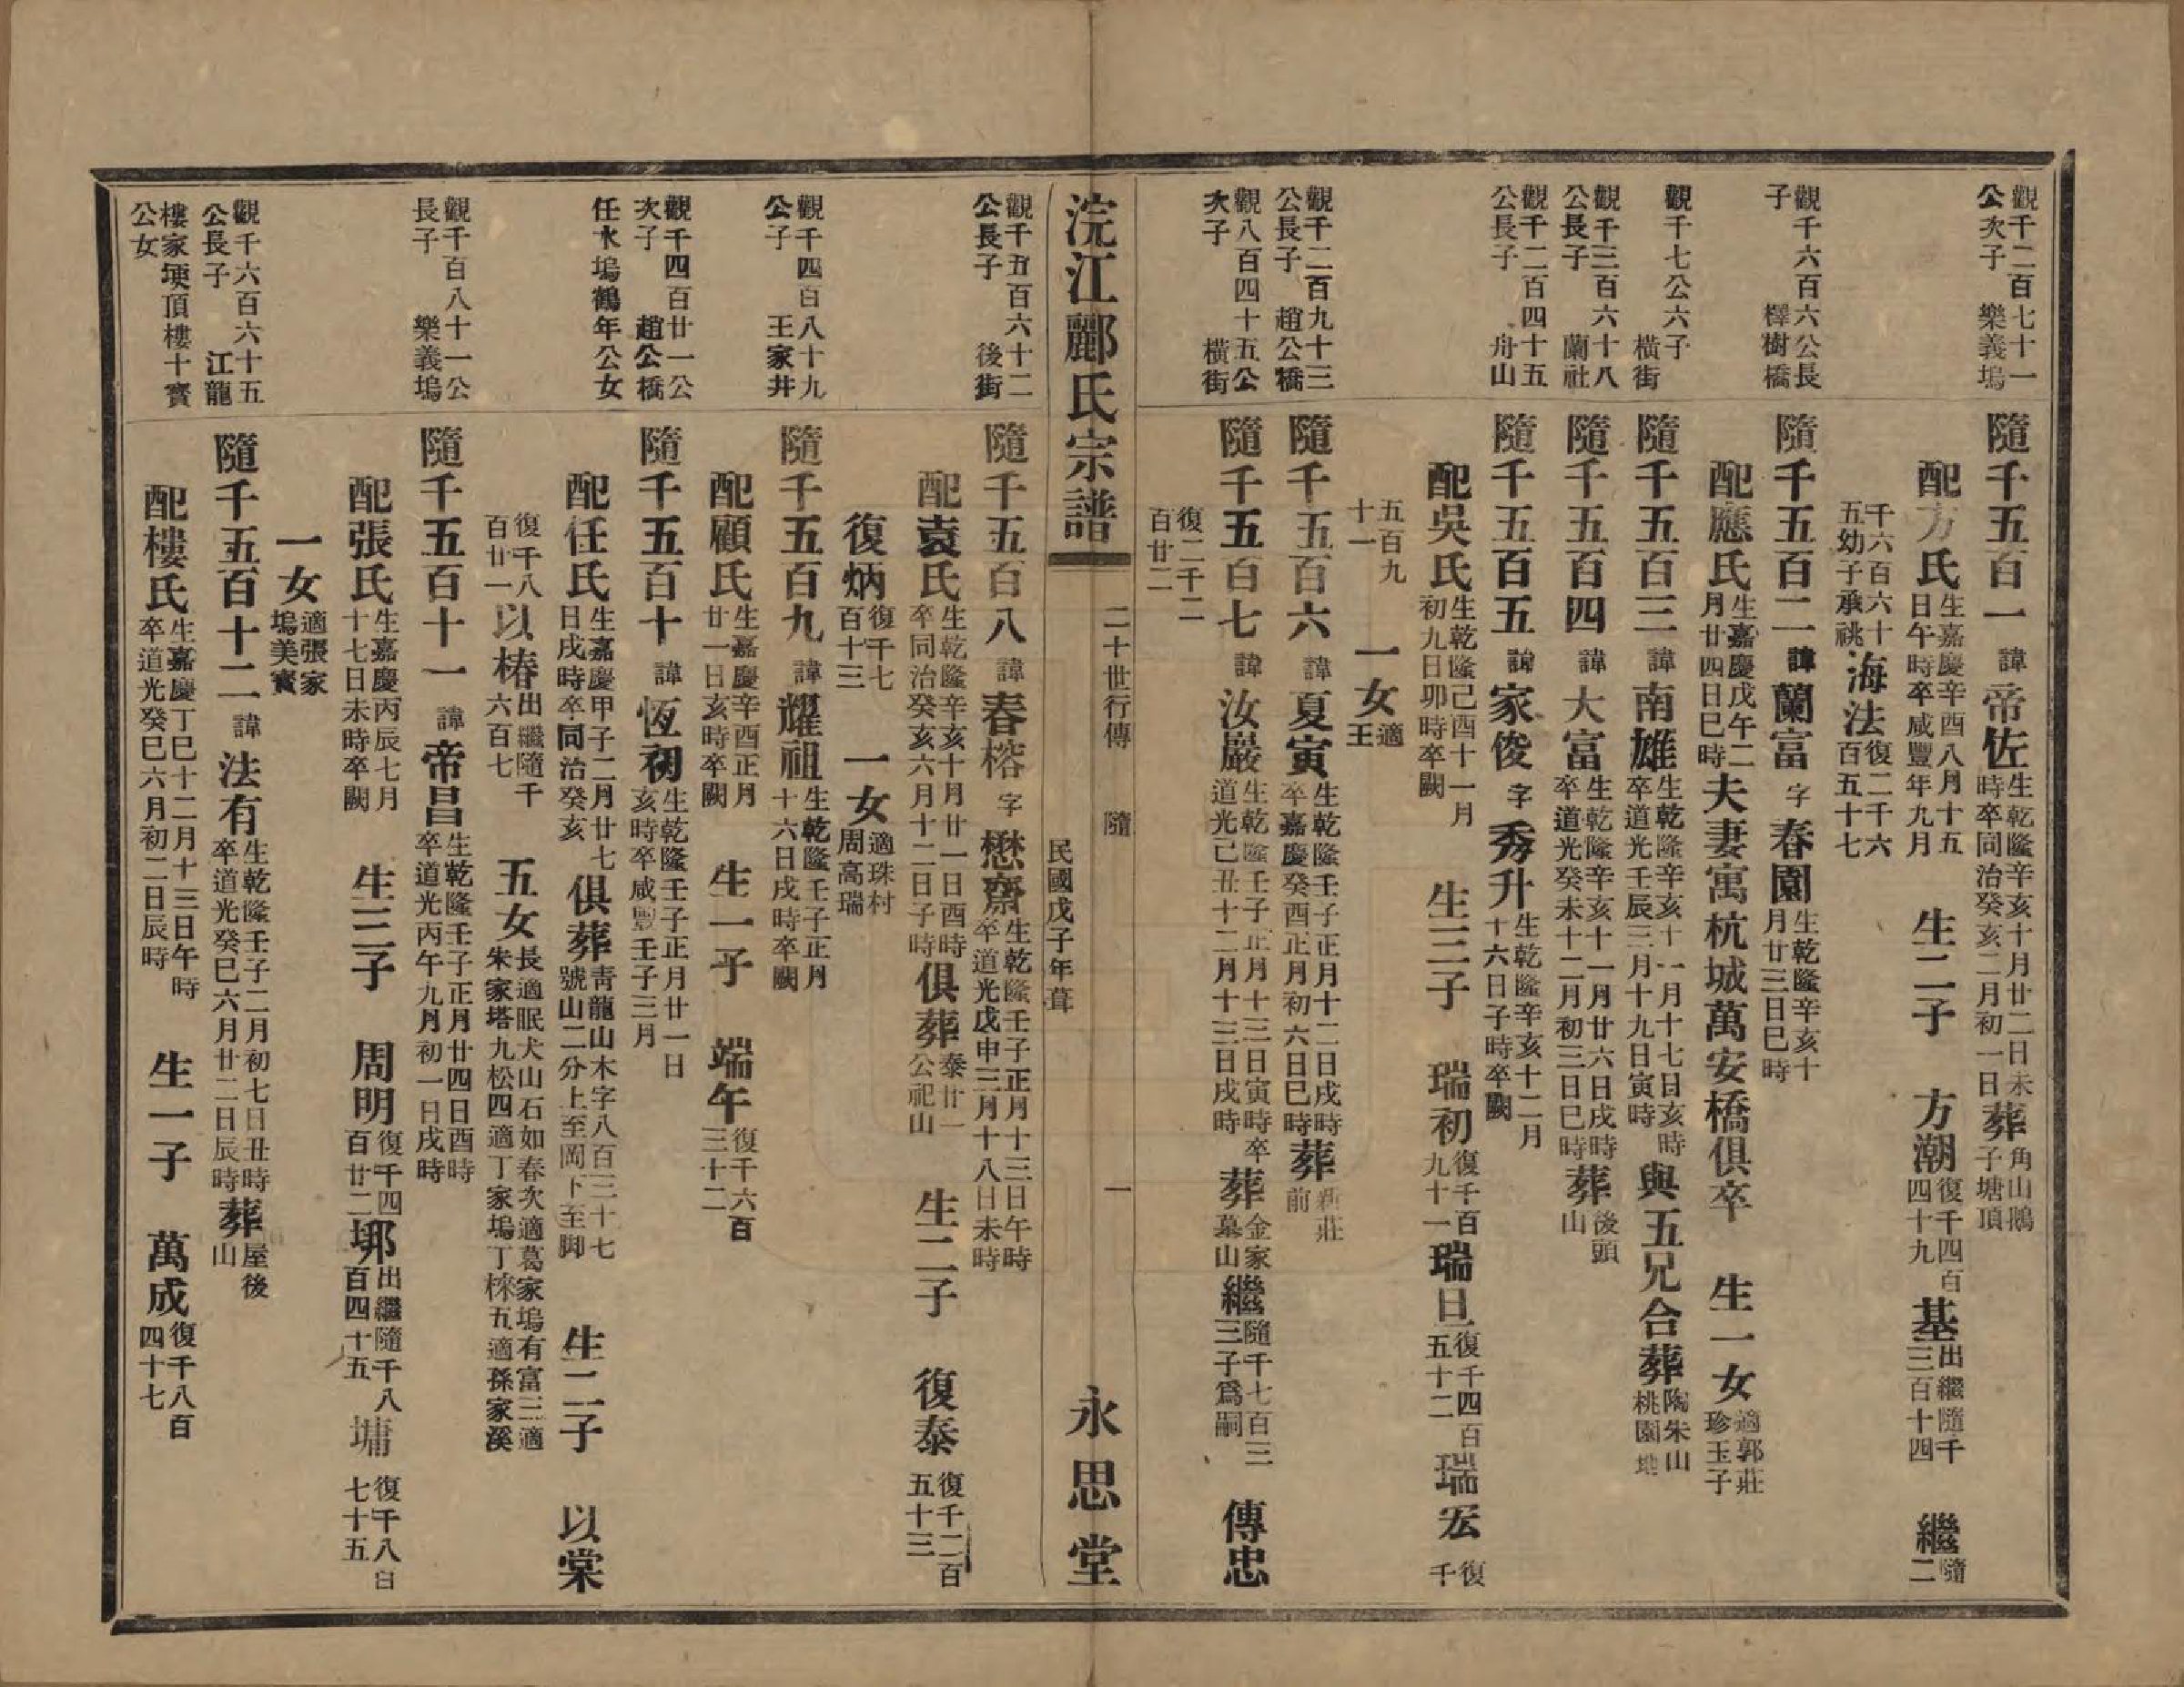 觀千二百七十一
公次子　樂義塢
隨千五百一諱帝佐生乾隆辛亥十月廿二日未
時卒同治癸亥二月初一日葬角山鵝
子塘頂
配方氏生嘉慶辛酉八月十五
日午時卒咸豐年九月　生二子　方潮復千四百
四十九基出繼隨千
三百十四　繼隨
二
千六百六十
五幼子承祧海法復二千六
百五十七
觀千六百六公長
子　檡樹橋
隨千五百二諱蘭富字春園生乾隆辛亥十
月廿三日巳時
配應氏生嘉慶戊午二
月廿四日巳時夫妻寓杭城萬安橋俱卒　生一女適郭莊
珍玉子
觀千七公六子
橫街
隨千五百三諱南雄生乾隆辛亥十一月十七日亥時
卒道光壬辰三月十九日寅時與五兄合葬陶朱山
桃園地
觀千三百六十八
公長子　蘭社
隨千五百四諱大富生乾隆辛亥十一月廿六日戌時
卒道光癸未十二月初三日巳時葬後頭
山
觀千二百四十五
公長子　舟山
隨千五百五諱家俊字秀升生乾隆辛亥十二月
十六日子時卒闕
配吳氏生乾隆己酉十一月
初九日卯時卒闕　生三子　瑞初復千百
九十一瑞旦復千四百
五十二瑞宏復
千
五百九
十一　一女適
王
觀千二百九十三
公長子　趙公橋
隨千五百六諱夏寅生乾隆壬子正月十二日戌時
卒嘉慶癸酉正月初六日巳時葬新莊
前
觀八百四十五公
次子　橫街
隨千五百七諱汝嚴生乾隆壬子正月十三日寅時卒
道光己丑十二月十三日戌時葬金家
墓山繼隨千七百三
三子爲嗣　傳忠
復二千二
百廿二
浣江酈氏宗譜
二十世行傳　隨
民國戊子年葺
一
永思堂
觀千五百六十二
公長子　後街
隨千五百八諱春榕字懋齋生乾隆壬子正月十三日午時
卒道光戊申三月十八日未時
配袁氏生乾隆辛亥十月廿一日酉時
卒同治癸亥六月十二日子時俱葬泰廿一
公祀山　生二子　復泰復千二百
五十三
復炳復千七
百十三　一女適珠村
周高瑞
觀千四百八十九
公子　王家井
隨千五百九諱耀祖生乾隆壬子正月
十六日戌時卒闕
配顧氏生嘉慶辛酉正月
廿一日亥時卒闕　生一子　端午復千六百
三十二
觀千四百廿一公
次子　趙公橋
隨千五百十諱恆初生乾隆壬子正月廿一日
亥時卒咸豐壬子三月
任水塢鶴年公女
配任氏生嘉慶甲子二月廿七
日戌時卒同治癸亥俱葬靑龍山木字八百三十七
號山二分上至岡下至脚　生二子　以棠
復千八
百廿一以椿出繼隨千
六百七　五女長適眠犬山石如春次適葛家塢有富三適
朱家塔九松四適丁家塢丁棶五適孫家溪
觀千百八十一公
長子　樂義塢
隨千五百十一諱帝昌生乾隆壬子正月廿四日酉時
卒道光丙午九月初一日戌時
配張氏生嘉慶丙辰七月
十七日未時卒闕　生三子　周明復千四
百廿二　出繼隨千八
百四十五　墉復千八百
七十五
一女適張家
塢美寳
觀千六百六十五
公長子　江龍
隨千五百十二諱法有生乾隆壬子二月初七日丑時
卒道光癸巳六月廿二日辰時葬屋後
山
樓家堧頂樓十寳
公女
配樓氏生嘉慶丁巳十二月十三日午時
卒道光癸巳六月初二日辰時　生一子　萬成復千八百
四十七